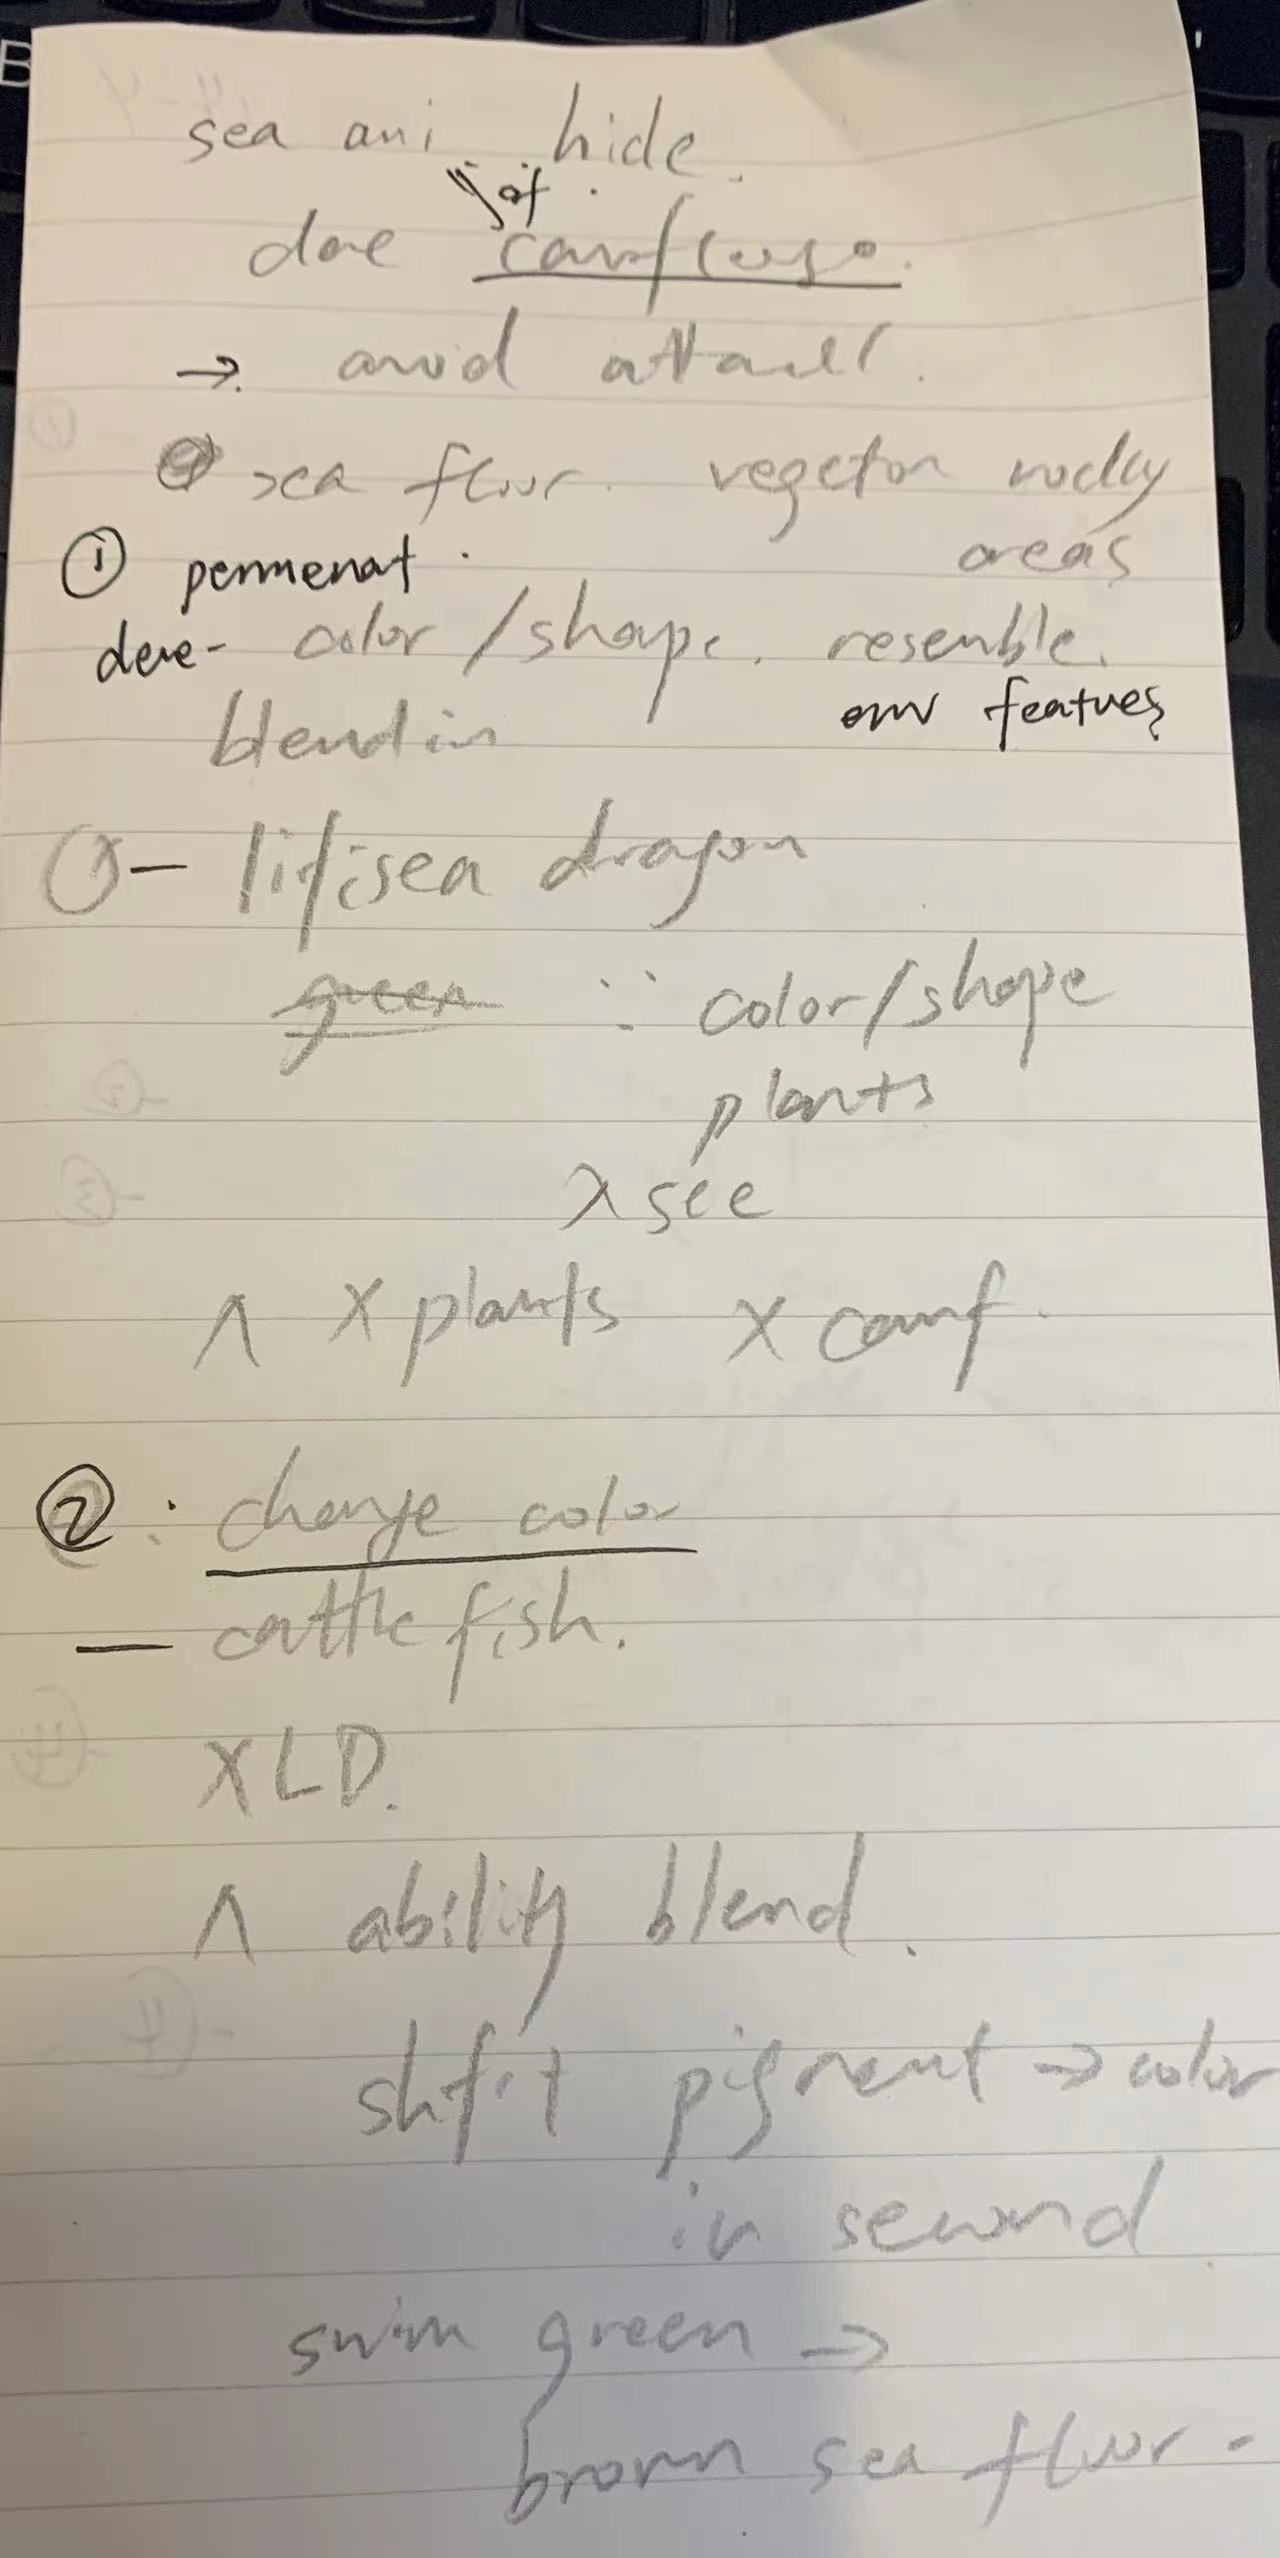 sea ani hide.
of
camfluge.
→ avoid attack.
sea floor. vegeton rocky
areas
① permenat.
deve- color/shape. resemble.
env features
blend in
①- lifisea dragon
green ∵ color/shape
plants
x see
∧ x plants x camf.
②: change color
— cuttlefish.
X LD.
∧ ability blend.
shfit pigment → color
in second
swim green →
brown sea floor.